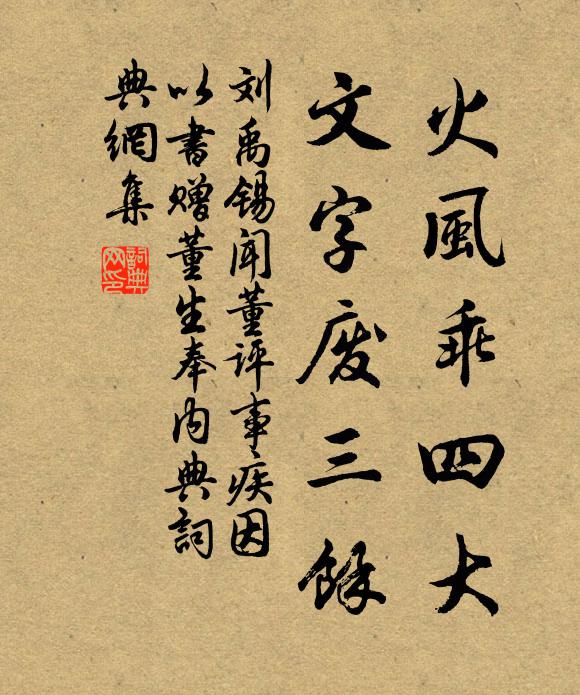 火風乖四大
文字废三餘
刘禹锡闻董评事疾因
以書赠董生奉内典詞
典網集
詞典網印